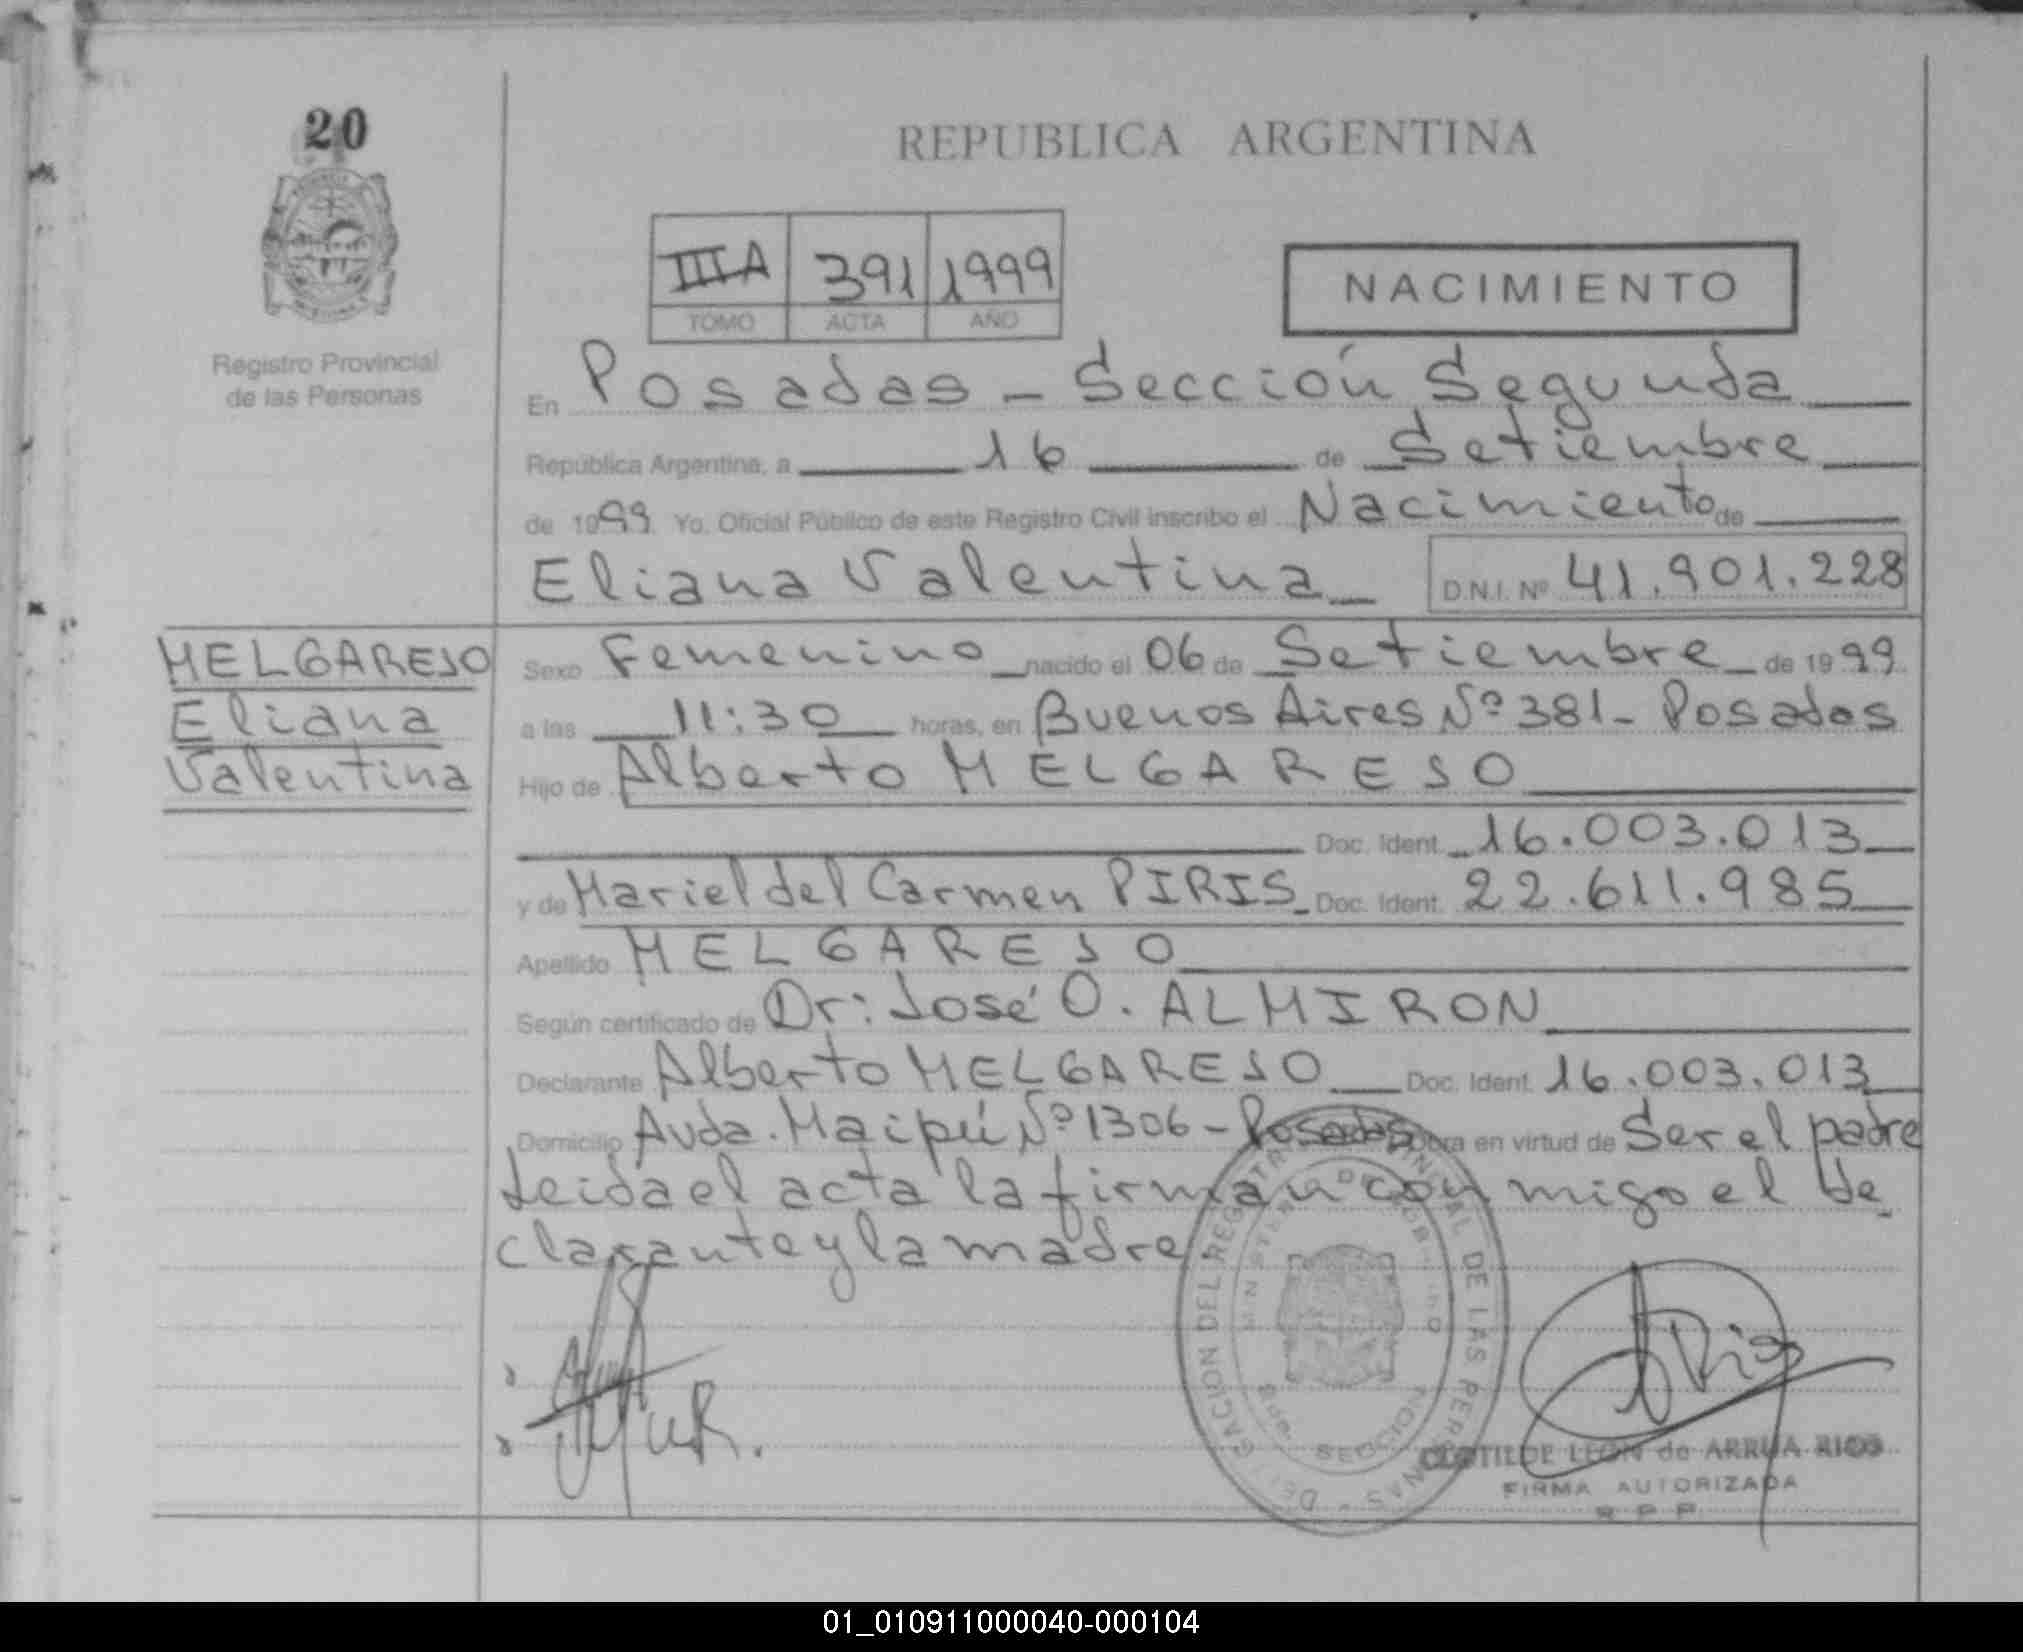 20
REPUBLICA ARGENTINA
III A 391 1999
TOMO ACTA AÑO
NACIMIENTO
Registro Provincial
de las Personas
En Posadas - Sección Segunda
República Argentina, a 16 de Setiembre
de 1999 Yo, Oficial Público de este Registro Civil inscribo el Nacimiento de
Eliana Valentina D.N.I. Nº 41.901.228
MELGAREJO
Eliana
Valentina
Sexo Femenino nacido el 06 de Setiembre de 1999
a las 11:30 horas, en Buenos Aires Nº 381 - Posadas
Hijo de Alberto MELGAREJO
Doc. Ident. 16.003.013
y de Mariel del Carmen PIRIS Doc. Ident. 22.611.985
Apellido MELGAREJO
Según certificado de Dr: José O. ALMIRON
Declarante Alberto MELGAREJO Doc. Ident. 16.003.013
Domicilio Avda. Maipú Nº 1306 - Posadas Obra en virtud de Ser el padre
Leida el acta la firman con migo el de
clarante y la madre.
DELEGACION DEL REGISTRO PROVINCIAL DE LAS PERSONAS
SECCION
A Rios
CLOTILDE LEON de ARRUA RIOS
FIRMA AUTORIZADA
R P P
01_010911000040-000104